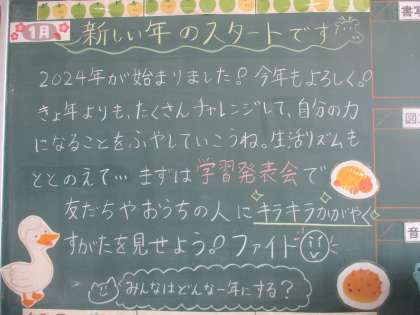 1月 新しい年のスタートです
2024年が始まりました! 今年もよろしく!
きょ年よりも、たくさんチャレンジして、自分の力
になることをふやしていこうね。生活リズムも
ととのえて… まずは学習発表会で
友だちやおうちの人にキラキラかがやく
すがたを見せよう! ファイト
みんなはどんな一年にする?
書写
図
音